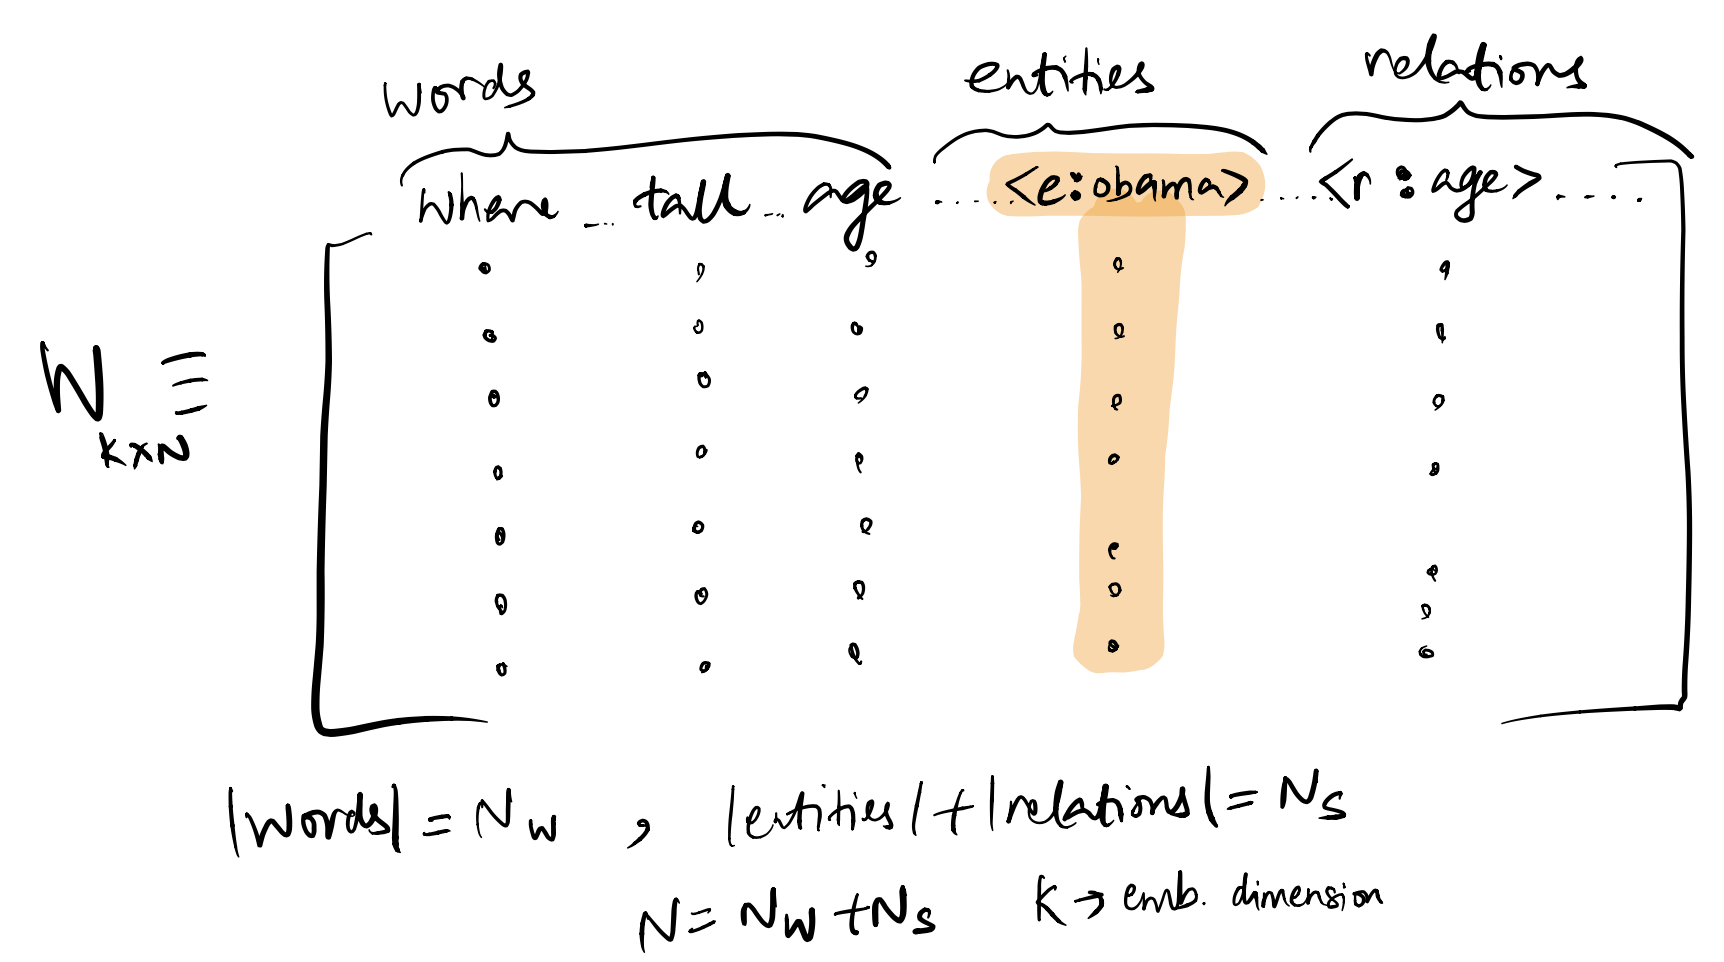 words entities relations
where ... tall ... age ..... <e:obama> ..... <r:age> .....
W ≡
k×N
|words| = N_w , |entities| + |relations| = N_s
N = N_w + N_s K → emb. dimension